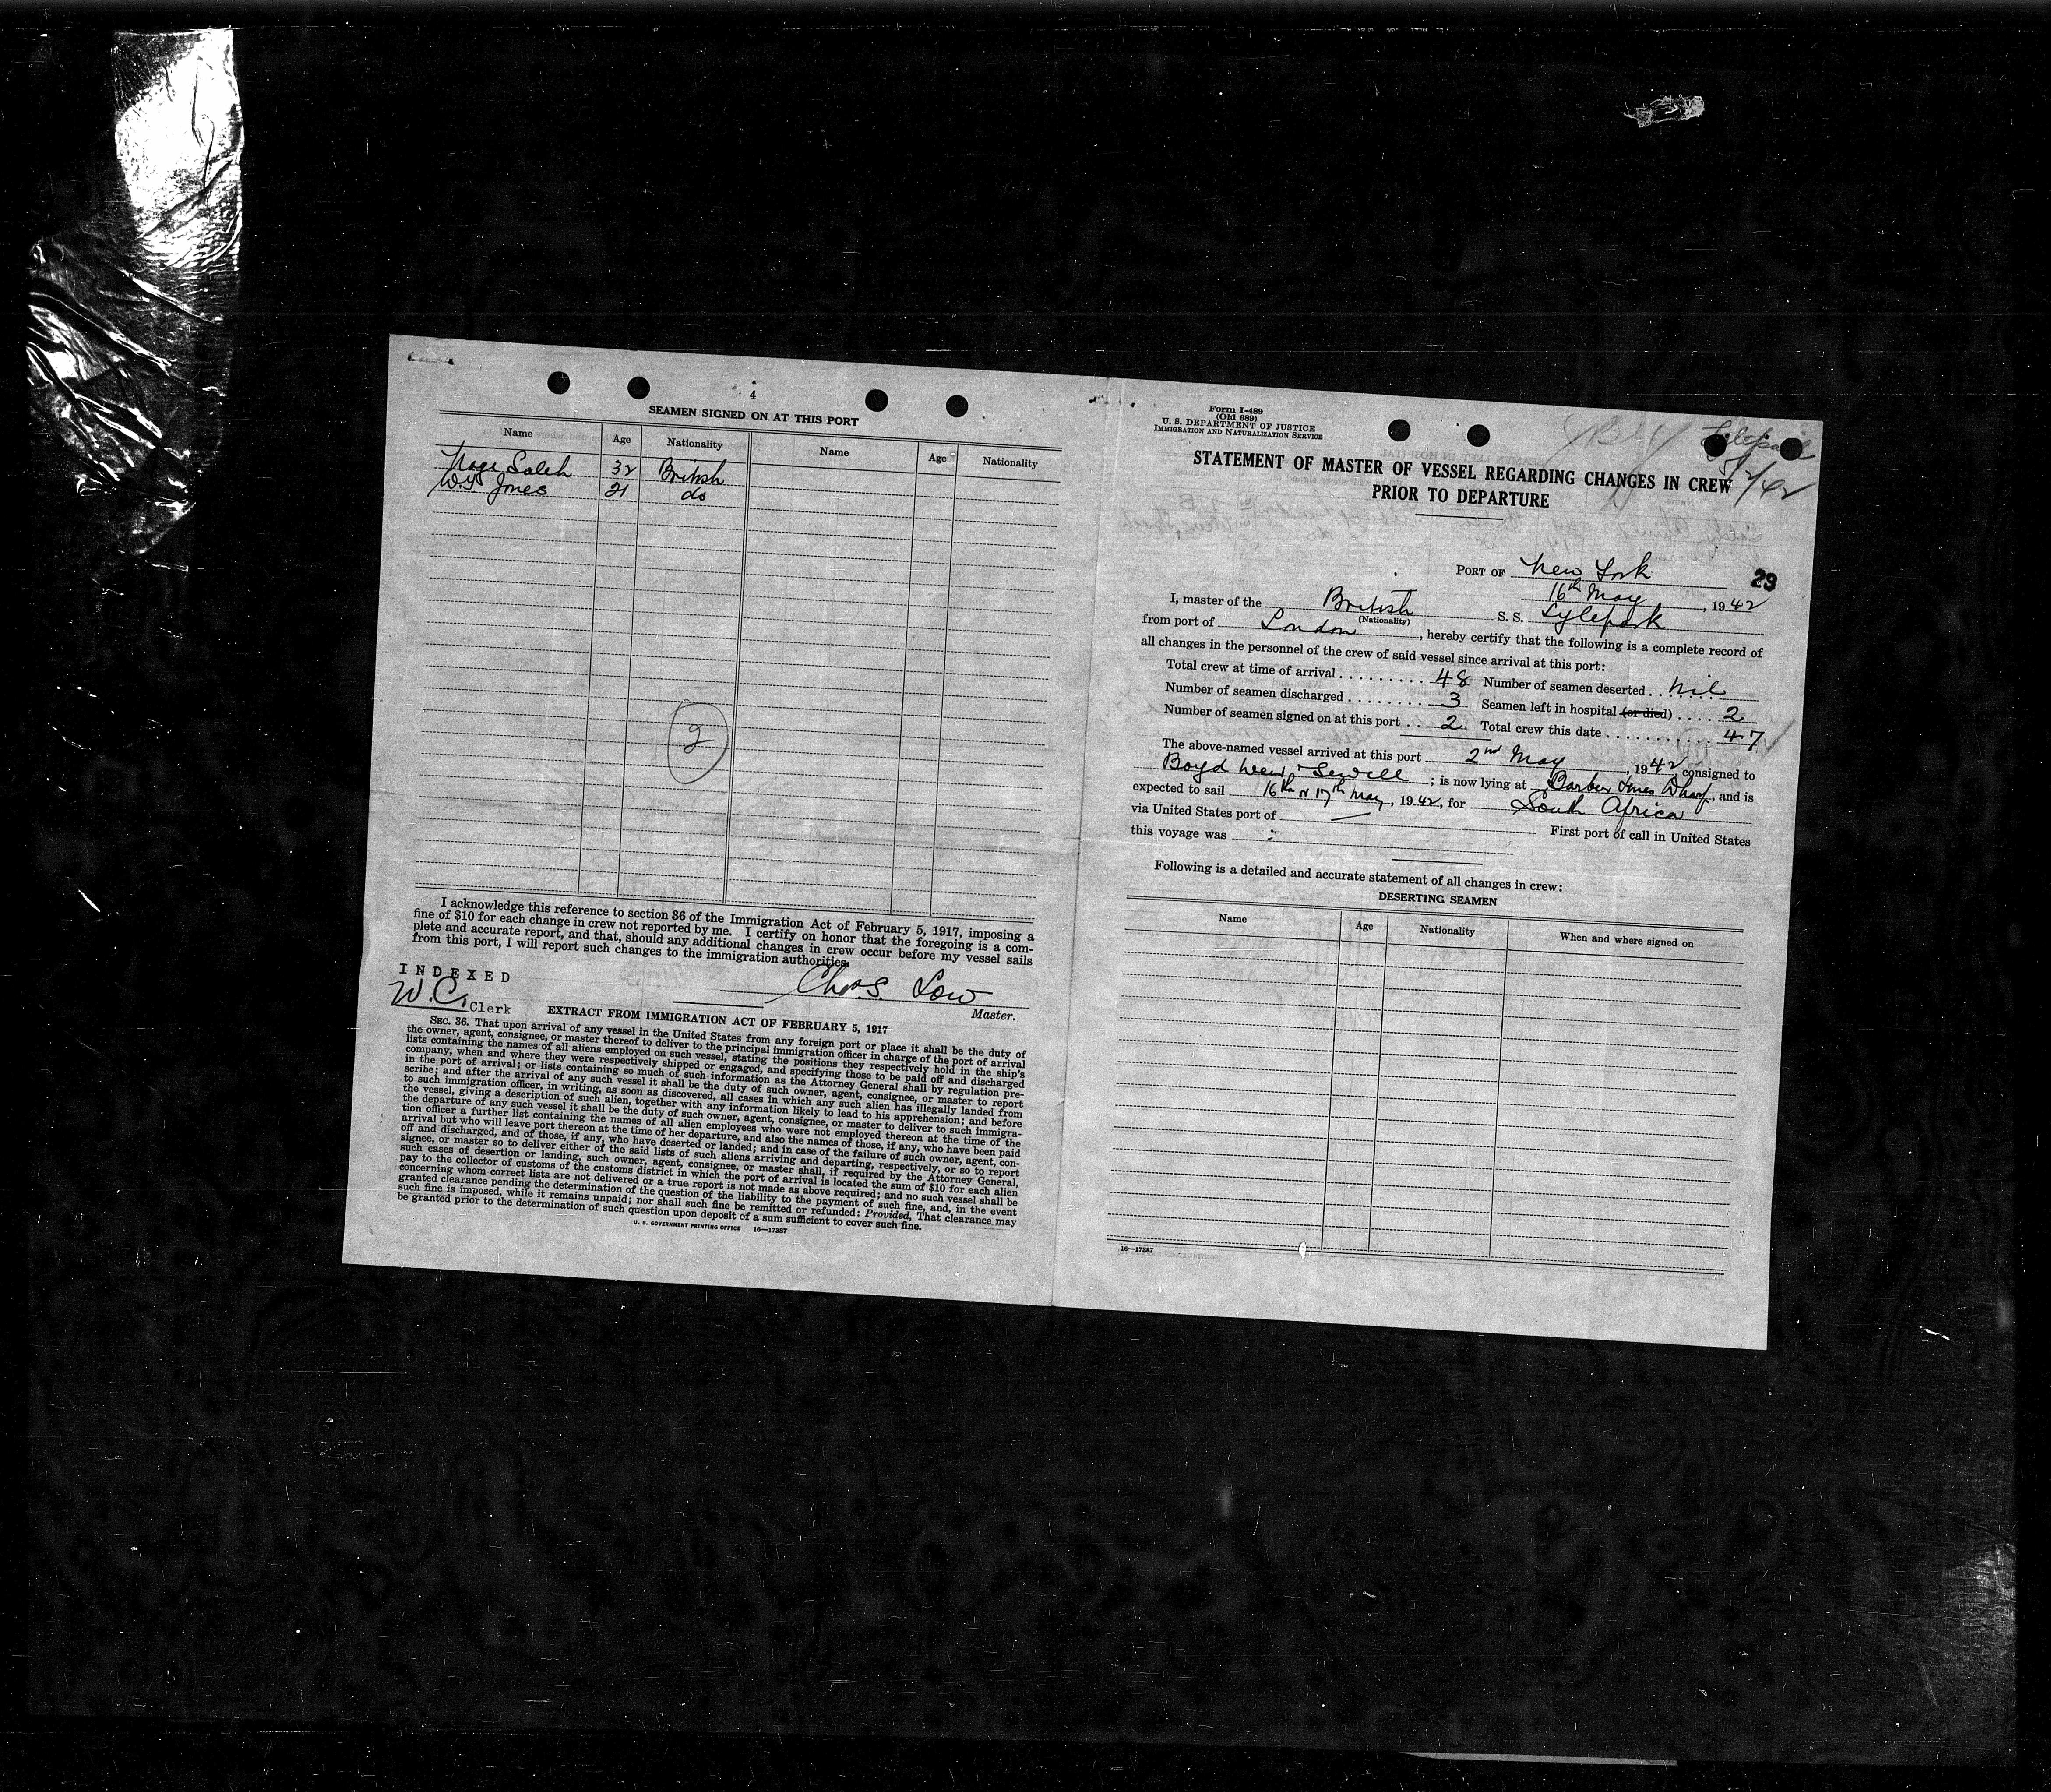 4
SEAMEN SIGNED ON AT THIS PORT
Name Age Nationality Name Age Nationality
Saleh 32 British
Jones 21 do
2
I acknowledge this reference to section 36 of the Immigration Act of February 5, 1917, imposing a
fine of $10 for each change in crew not reported by me. I certify on honor that the foregoing is a com-
plete and accurate report, and that, should any additional changes in crew occur before my vessel sails
from this port, I will report such changes to the immigration authorities.
INDEXED
W.C. Clerk
Chas. Low
Master.
EXTRACT FROM IMMIGRATION ACT OF FEBRUARY 5, 1917
SEC. 36. That upon arrival of any vessel in the United States from any foreign port or place it shall be the duty of
the owner, agent, consignee, or master thereof to deliver to the principal immigration officer in charge of the port of arrival
lists containing the names of all aliens employed on such vessel, stating the positions they respectively hold in the ship's
company, when and where they were respectively shipped or engaged, and specifying those to be paid off and discharged
in the port of arrival; or lists containing so much of such information as the Attorney General shall by regulation pre-
scribe; and after the arrival of any such vessel it shall be the duty of such owner, agent, consignee, or master to report
to such immigration officer, in writing, as soon as discovered, all cases in which any such alien has illegally landed from
the vessel, giving a description of such alien, together with any information likely to lead to his apprehension; and before
the departure of any such vessel it shall be the duty of such owner, agent, consignee, or master to deliver to such immigra-
tion officer a further list containing the names of all alien employees who were not employed thereon at the time of the
arrival but who will leave port thereon at the time of her departure, and also the names of those, if any, who have been paid
off and discharged, and of those, if any, who have deserted or landed; and in case of the failure of such owner, agent, con-
signee, or master so to deliver either of the said lists of such aliens arriving and departing, respectively, or so to report
such cases of desertion or landing, such owner, agent, consignee, or master shall, if required by the Attorney General,
pay to the collector of customs of the customs district in which the port of arrival is located the sum of $10 for each alien
concerning whom correct lists are not delivered or a true report is not made as above required; and no such vessel shall be
granted clearance pending the determination of the question of the liability to the payment of such fine, and, in the event
such fine is imposed, while it remains unpaid; nor shall such fine be remitted or refunded: Provided, That clearance may
be granted prior to the determination of such question upon deposit of a sum sufficient to cover such fine.
U. S. GOVERNMENT PRINTING OFFICE 16—17387
Form I-489
(Old 689)
U. S. DEPARTMENT OF JUSTICE
IMMIGRATION AND NATURALIZATION SERVICE
STATEMENT OF MASTER OF VESSEL REGARDING CHANGES IN CREW
PRIOR TO DEPARTURE
PORT OF New York 29
16th May, 1942
I, master of the British S. S. Lylepark
(Nationality)
from port of London, hereby certify that the following is a complete record of
all changes in the personnel of the crew of said vessel since arrival at this port:
Total crew at time of arrival 48 Number of seamen deserted nil
Number of seamen discharged 3 Seamen left in hospital (or died) 2
Number of seamen signed on at this port 2 Total crew this date 47
The above-named vessel arrived at this port 2nd May, 1942, consigned to
Boyd Weir & Sewell; is now lying at Barber Lines Wharf, and is
expected to sail 16th or 17th May, 1942, for South Africa
via United States port of — First port of call in United States
this voyage was
Following is a detailed and accurate statement of all changes in crew:
DESERTING SEAMEN
Name Age Nationality When and where signed on
16—17387